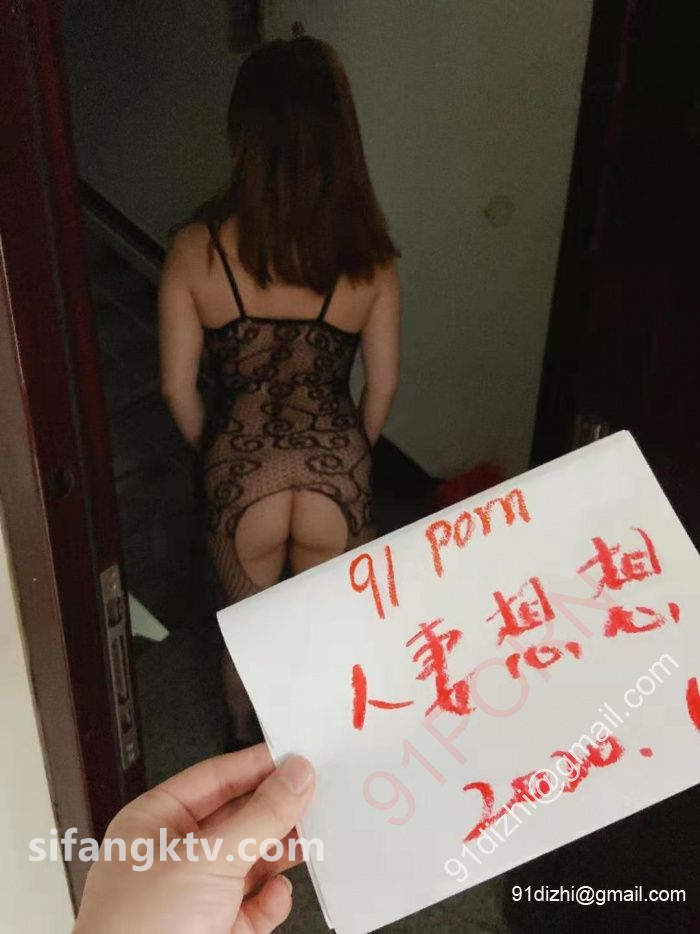 91 porn
人妻想想
2020.
91PORN
91dizhi@gmail.com
sifangktv.com
91dizhi@gmail.com